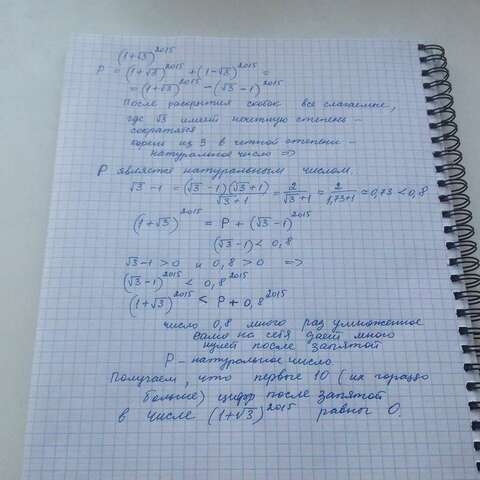 (1+√3)^2015
P = (1+√3)^2015 + (1-√3)^2015 =
= (1+√3)^2015 - (√3-1)^2015
После раскрытия скобок все слагаемые,
где √3 имеет нечетную степень -
сократятся
корень из 3 в четной степени -
натуральное число =>
P является натуральным числом.
√3-1 = (√3-1)(√3+1)/(√3+1) = 2/(√3+1) ≈ 2/(1,73+1) ≈ 0,73 < 0,8
(1+√3)^2015 = P + (√3-1)^2015
(√3-1) < 0,8
√3-1 > 0 и 0,8 > 0 =>
(√3-1)^2015 < 0,8^2015
(1+√3)^2015 < P + 0,8^2015
число 0,8 много раз умноженное
само на себя дает много
нулей после запятой
P - натуральное число.
Получаем, что первые 10 (их гораздо
больше) цифр после запятой
в числе (1+√3)^2015 равны 0.